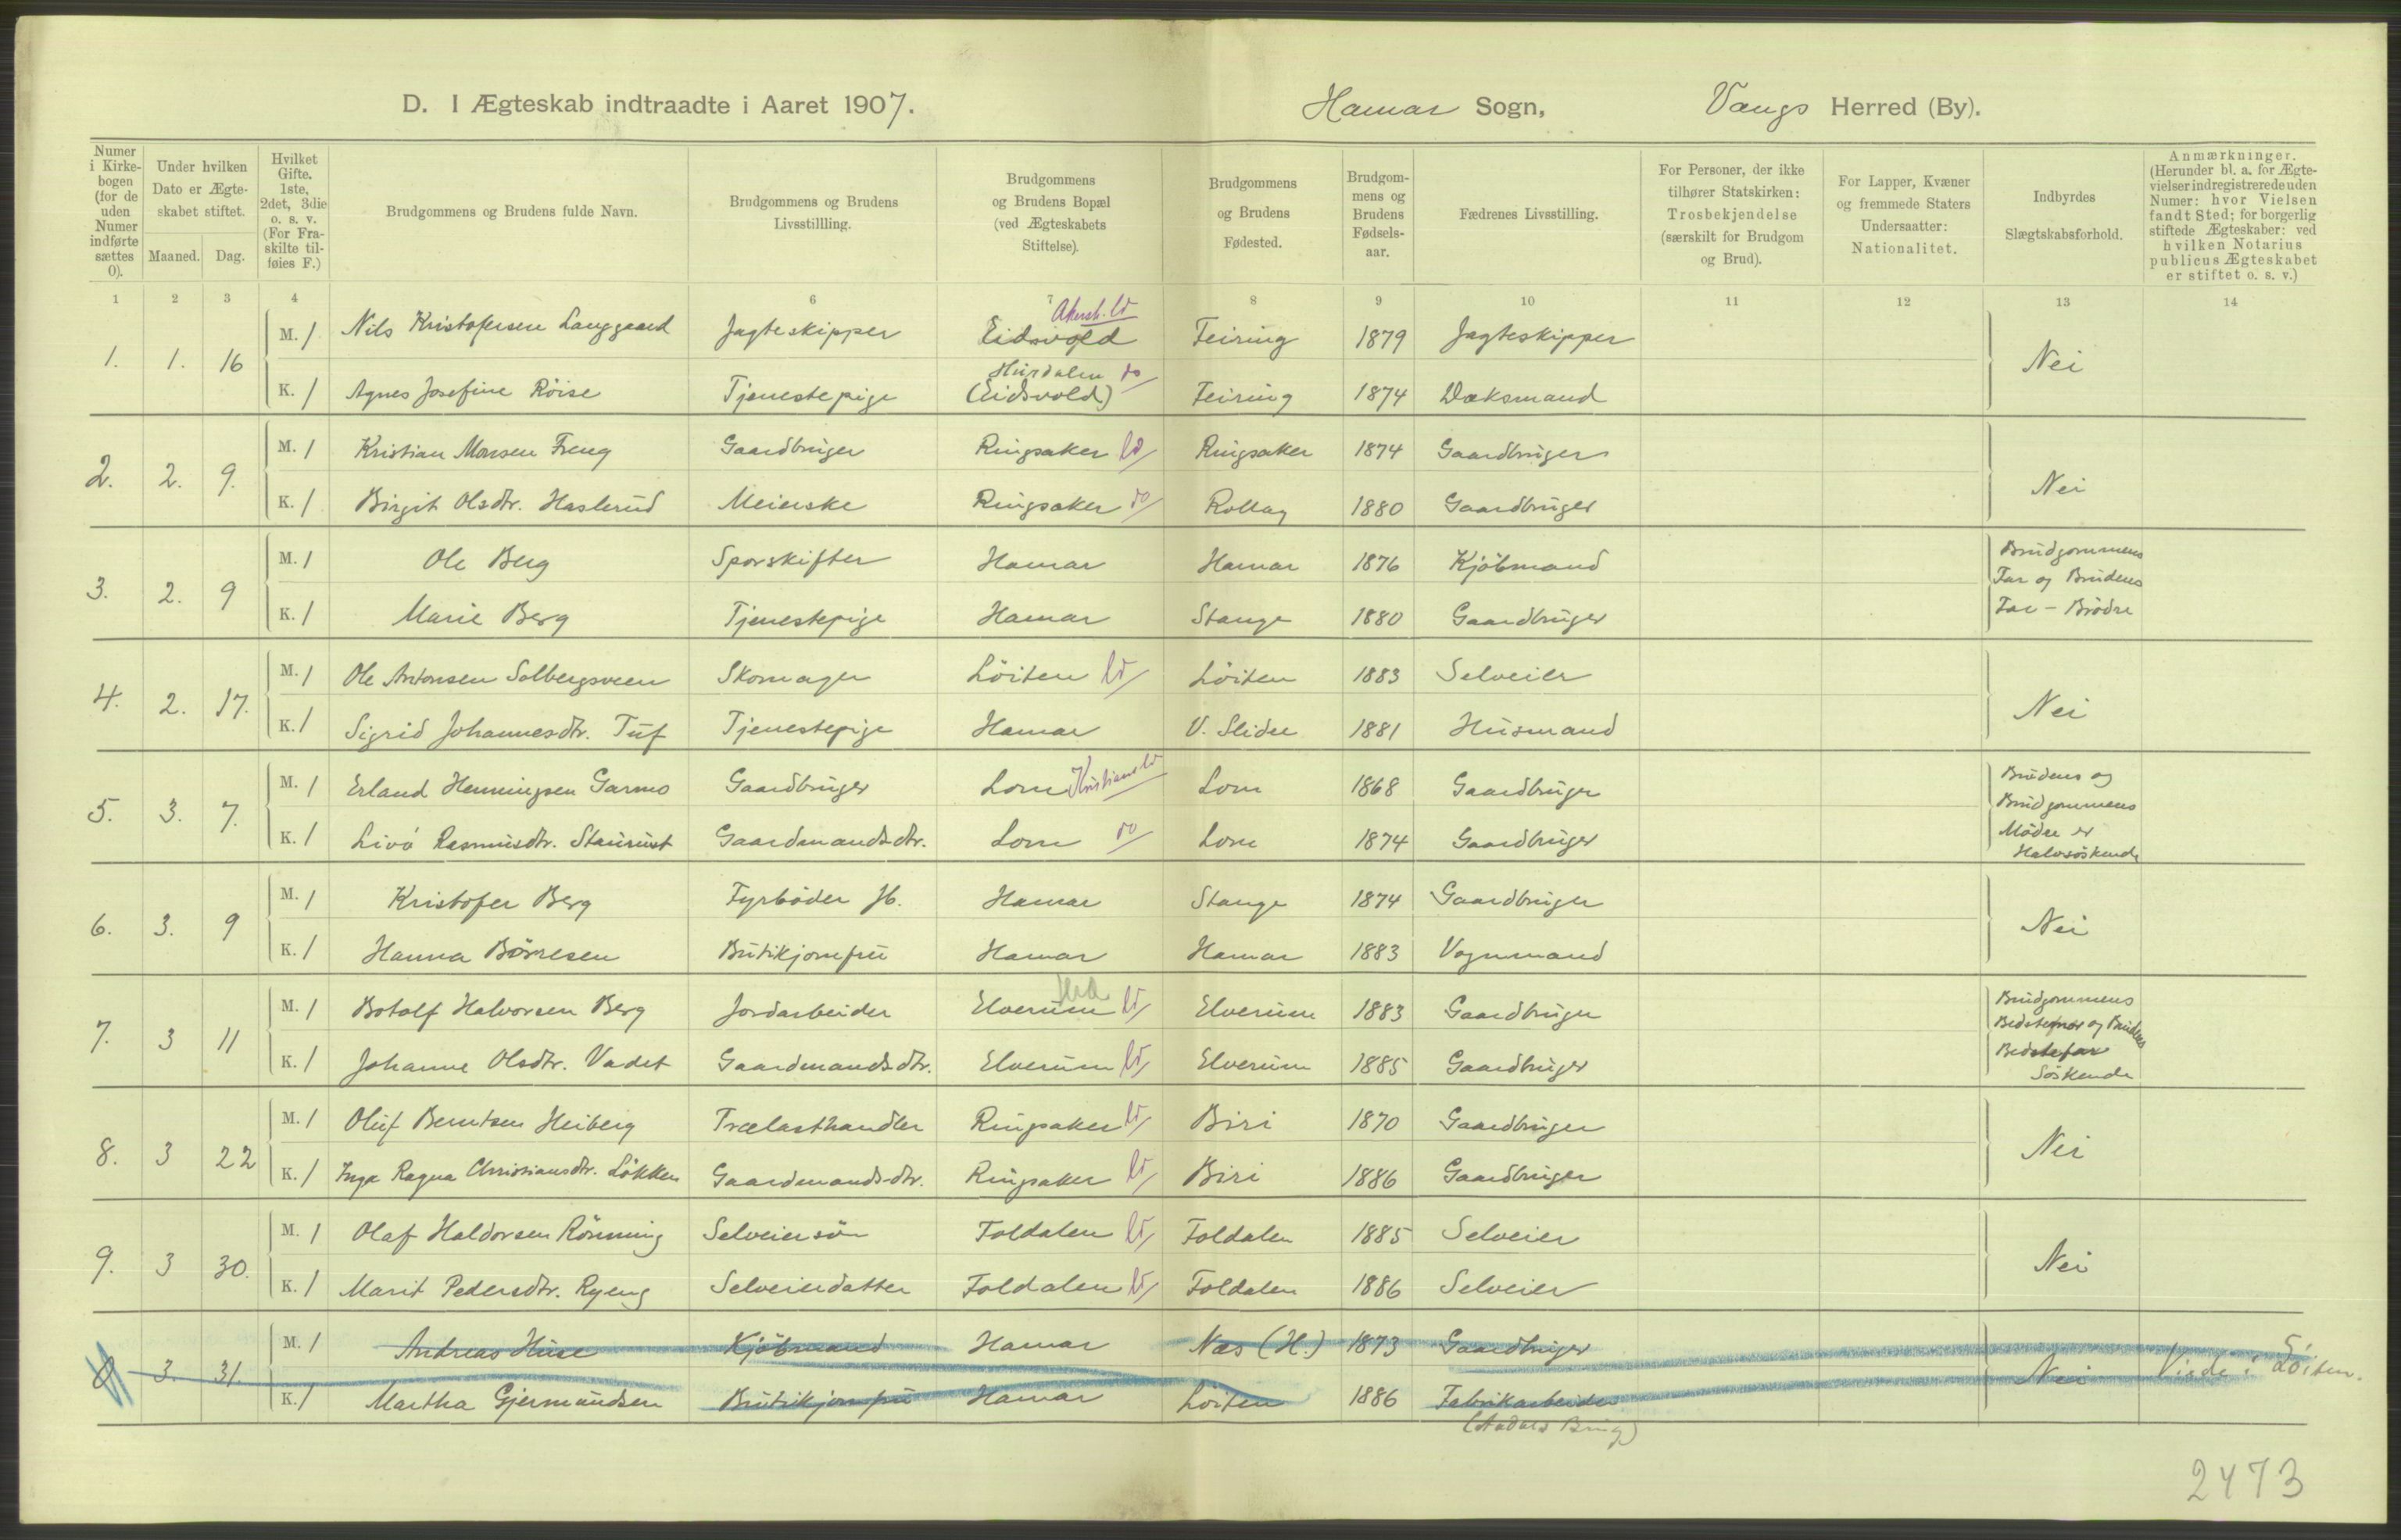 D. I Ægteskab indtraadte i Aaret 1907.
Hamar Sogn, Vangs Herred (By).
Numer i Kirkebogen (for de uden Numer indførte sættes 0).
Under hvilken Dato er Ægteskabet stiftet.
Maaned. Dag.
Hvilket Gifte. 1ste, 2det, 3die o. s. v. (For Fraskilte tilføies F.)
Brudgommens og Brudens fulde Navn.
Brudgommens og Brudens Livsstillling.
Brudgommens og Brudens Bopæl (ved Ægteskabets Stiftelse).
Brudgommens og Brudens Fødested.
Brudgommens og Brudens Fødselsaar.
Fædrenes Livsstilling.
For Personer, der ikke tilhører Statskirken: Trosbekjendelse (særskilt for Brudgom og Brud).
For Lapper, Kvæner og fremmede Staters Undersaatter: Nationalitet.
Indbyrdes Slægtskabsforhold.
Anmærkninger. (Herunder bl. a. for Ægtevielser indregistrerede uden Numer: hvor Vielsen fandt Sted; for borgerlig stiftede Ægteskaber: ved hvilken Notarius publicus Ægteskabet er stiftet o. s. v.)
1 2 3 4 6 7 8 9 10 11 12 13 14
1. 1. 16 M. 1 Nils Kristofersen Langgaard Jagteskipper Akersh. ld Eidsvold Feiring 1879 Jagteskipper Nei
K. 1 Agnes Josefine Röise Tjenestepige Hurdalen do (Eidsvold) Feiring 1874 Væksmand
2. 2. 9. M. 1 Kristian Monsen Freng Gaardbruger Ringsaker ld Ringsaker 1874 Gaardbruger Nei
K. 1 Birgit Olsdtr. Haslerud Meierske Ringsaker do Rollag 1880 Gaardbruger
3. 2. 9 M. 1 Ole Berg Sporskifter Hamar Hamar 1876 Kjöbmand Brudgommens Far og Brudens Far - Brödre
K. 1 Marie Berg Tjenestepige Hamar Stange 1880 Gaardbruger
4. 2. 17. M. 1 Ole Antonsen Solbergsveen Skomager Löiten ld Löiten 1883 Selveier Nei
K. 1 Sigrid Johannesdtr. Tuf Tjenestepige Hamar V. Slidre 1881 Husmand
5. 3. 7. M. 1 Erland Henningsen Garmo Gaardbruger Lom Kristians ld Lom 1868 Gaardbruger Brudens og Brudgommens Mödre er Halvsöskende
K. 1 Livö Rasmusdtr. Staurust Gaardmandsdtr. Lom do Lom 1874 Gaardbruger
6. 3. 9 M. 1 Kristofer Berg Fyrböder Jb. Hamar Stange 1874 Gaardbruger Nei
K. 1 Hanna Börresen Butikjomfru Hamar Hamar 1883 Vognmand
7. 3 11 M. 1 Botolf Halvorsen Berg Jordarbeider Elverum ld Elverum 1883 Gaardbruger Brudgommens Bedstemor og Brudens Bedstefar Söskende
K. 1 Johanne Olsdtr. Vadet Gaardmandsdtr. Elverum ld Elverum 1885 Gaardbruger
8. 3 22 M. 1 Oluf Berntsen Heiberg Trælasthandler Ringsaker ld Biri 1870 Gaardbruger Nei
K. 1 Inga Ragna Christiansdtr. Lökken Gaardmandsdtr. Ringsaker ld Biri 1886 Gaardbruger
9. 3 30. M. 1 Olaf Haldorsen Rönning Selveiersön Foldalen ld Foldalen 1885 Selveier Nei
K. 1 Marit Pedersdtr. Ryeng Selveierdatter Foldalen ld Foldalen 1886 Selveier
0 3. 31. M. 1 Andreas Huse Kjöbmand Hamar Næs (H.) 1873 Gaardbruger Nei Viede i Löiten.
K. 1 Martha Gjermundsen Butikjomfru Hamar Löiten 1886 Fabrikarbeider
(Aadals Brug)
2473